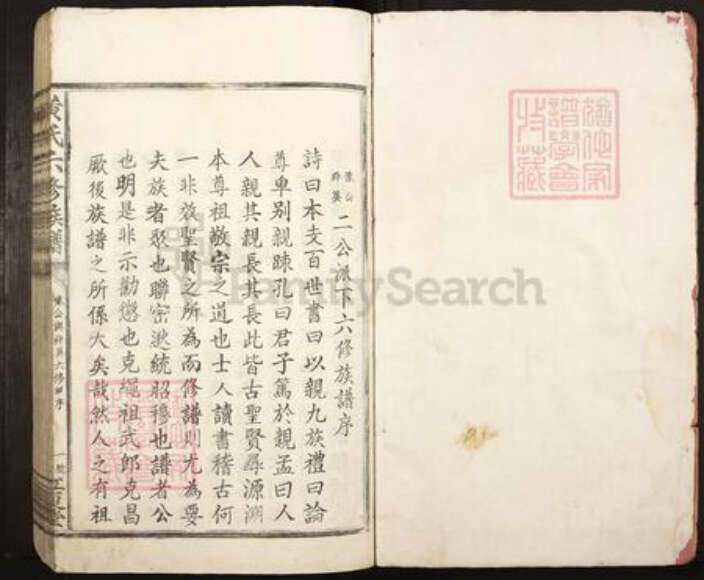 二公派下六修族譜序
詩曰本支百世書曰以親九族禮曰論
尊卑别親踈孔曰君子篤於親孟曰人
人親其親長其長此皆古聖賢尋源溯
本尊祖敬宗之道也士人讀書稽古何
一非效聖賢之所為而修譜則尤為要
夫族者聚也聯宻渙統昭穆也譜者公
也明是非示勸懲也克繩祖武郎克昌
厥後族譜之所係大矣哉然人之有祖
黄氏六修族譜
FamilySearch